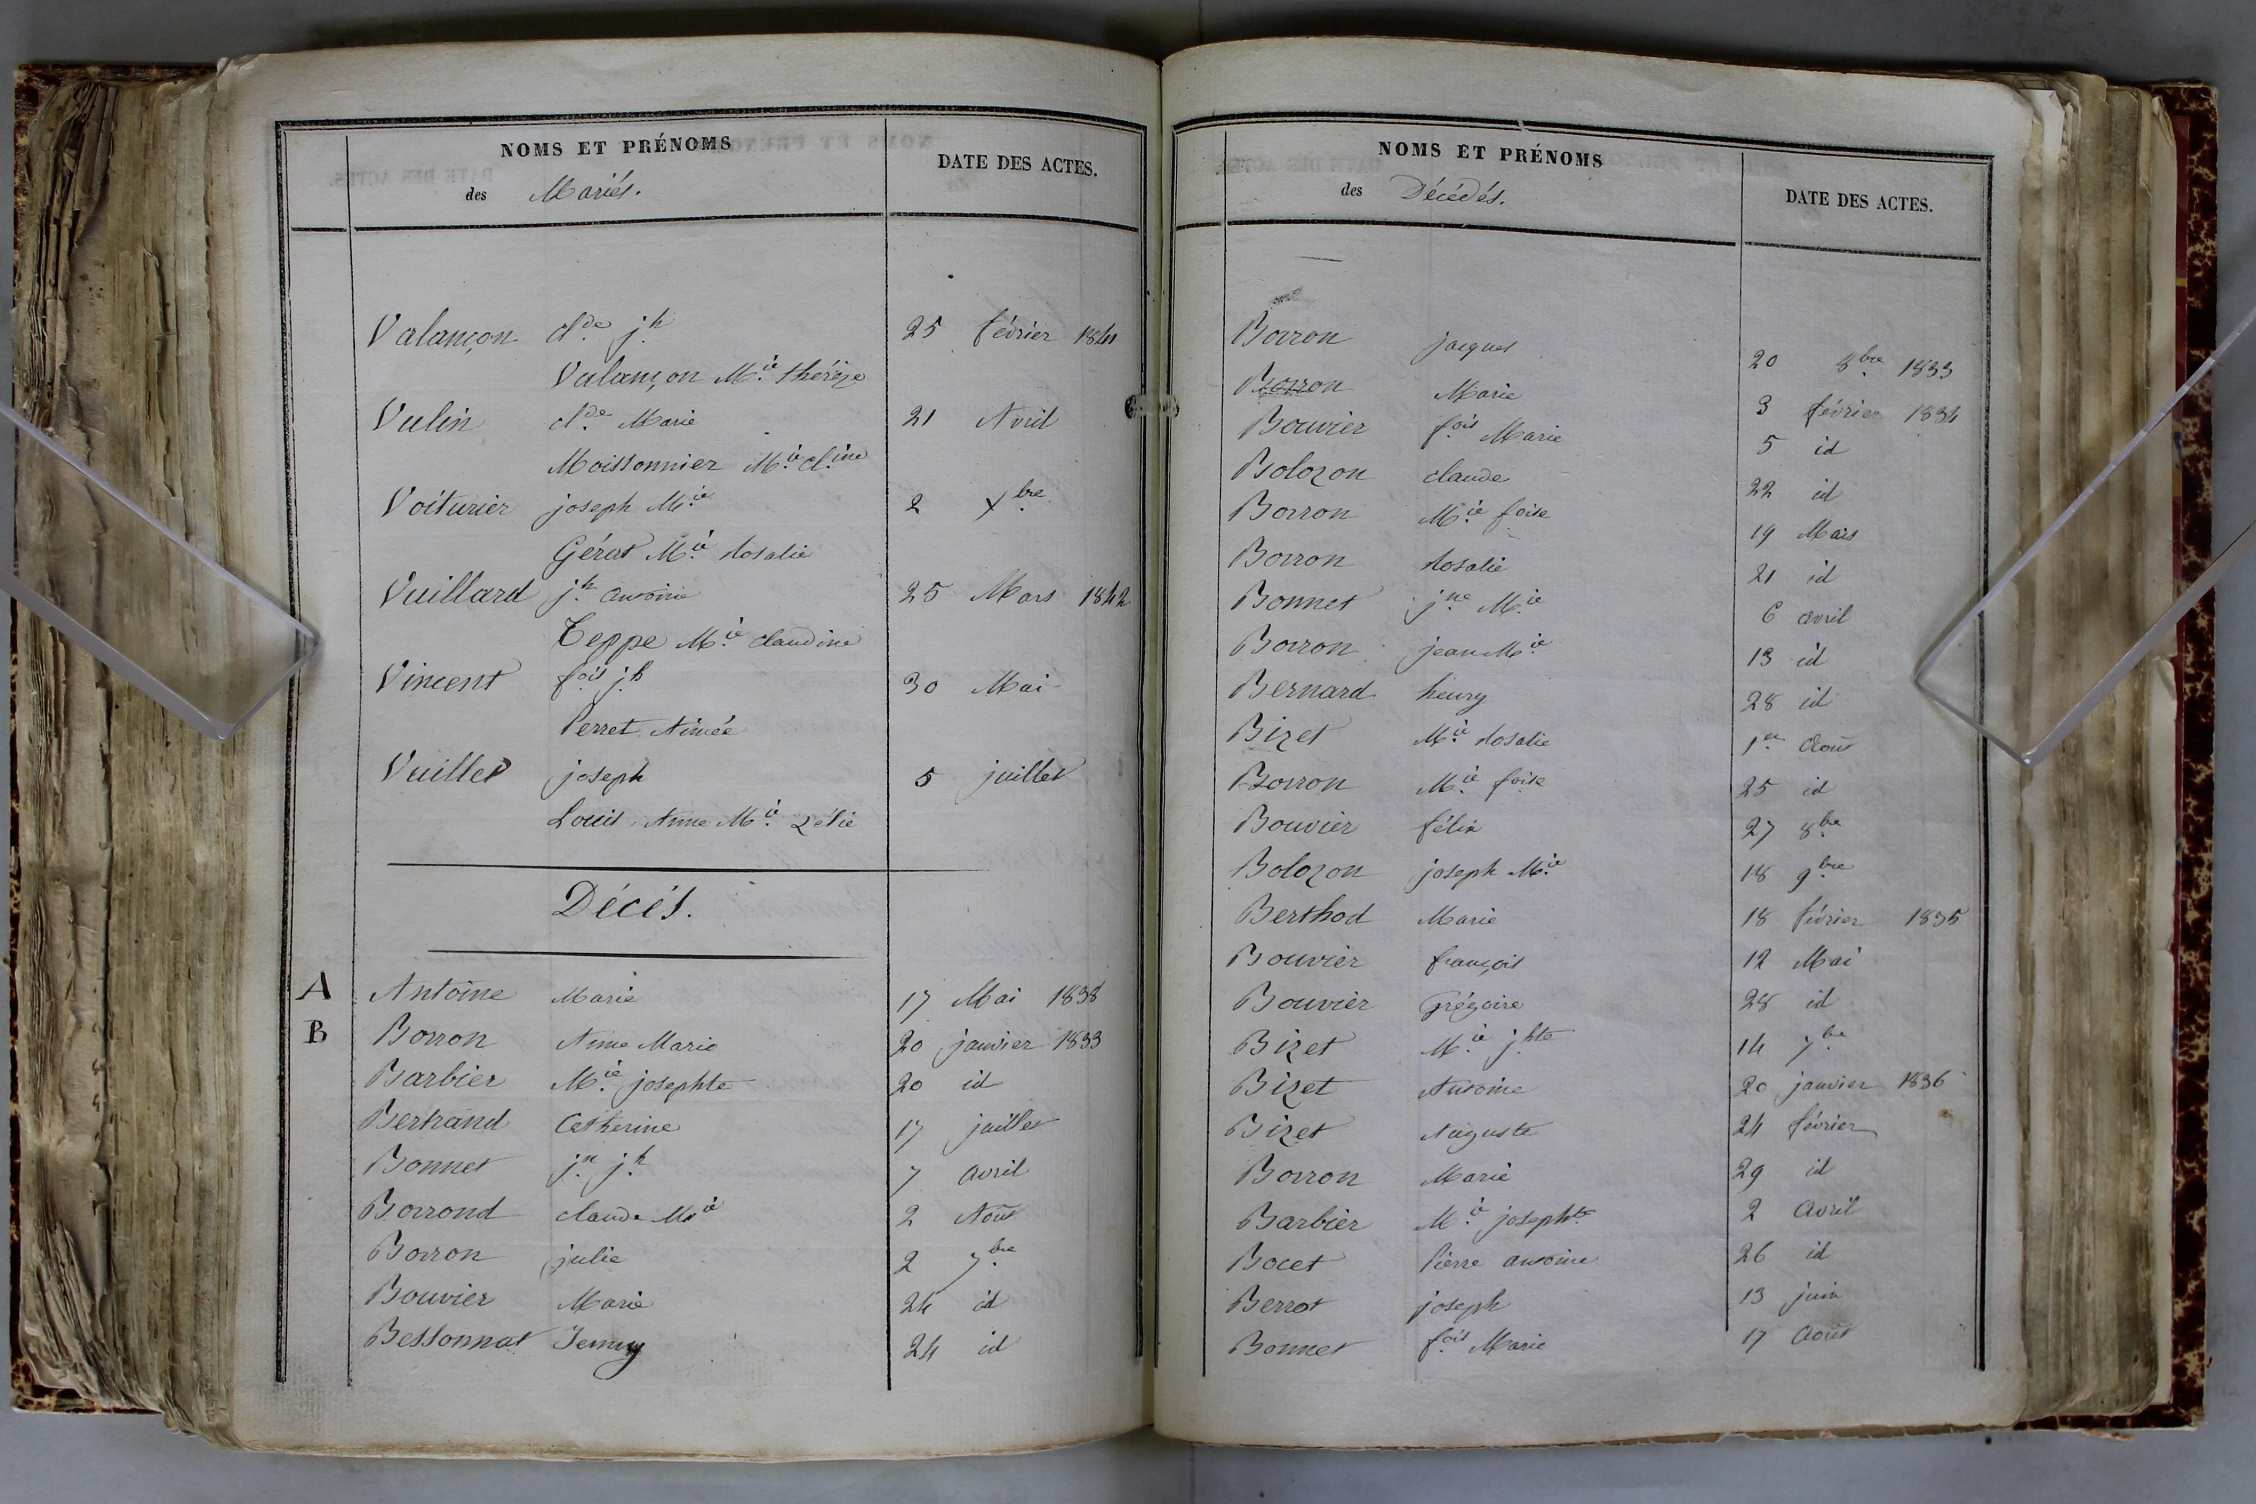 NOMS ET PRÉNOMS
des Mariés.
DATE DES ACTES.
Valançon Cl.de j.h 25 février 1841
Valançon M.ie thérèze
Vulin Cl.de Marie 21 Avril
Moissonnier M.ie Cl.ine
Voiturier joseph M.ie 2 Xbre
Gérat M.ie Rosalie
Vuillard j.h antoine 25 Mars 1842
Teppe M.ie Claudine
Vincent f.ois j.h 30 Mai
Perret Aimée
Vuillet joseph 5 juillet
Louis Anne M.ie Zélie
Décés.
A Antoine Marie 17 Mai 1838
B Borron Anne Marie 20 janvier 1833
Barbier M.ie josephte 20 id
Bertrand Catherine 17 juillet
Bonnet j.n j.h 7 avril
Borrond claude M.ie 2 Août
Borron julie 2 7bre
Bouvier Marie 24 id
Bessonnat Jenny 24 id
NOMS ET PRÉNOMS
des Décédés.
DATE DES ACTES.
Borron jacques 20 8bre 1833
Borron Marie 3 février 1834
Bouvier f.ois Marie 5 id
Bolozon claude 22 id
Borron M.ie foise 19 Mars
Borron Rosalie 21 id
Bonnet j.ne M.ie 6 avril
Borron jean M.ie 13 id
Bernard henry 28 id
Bizet M.ie Rosalie 1er Août
Borron M.ie foise 25 id
Bouvier félix 27 8bre
Bolozon joseph M.ie 18 9bre
Berthod Marie 18 février 1835
Bouvier françois 12 Mai
Bouvier Grégoire 28 id
Bizet M.ie j.hte 14 7bre
Bizet Antoine 20 janvier 1836
Bizet Auguste 24 février
Borron Marie 29 id
Barbier M.ie josephte 2 Avril
Bocet Pierre antoine 26 id
Berrot joseph 13 juin
Bonnet f.ois Marie 17 Août